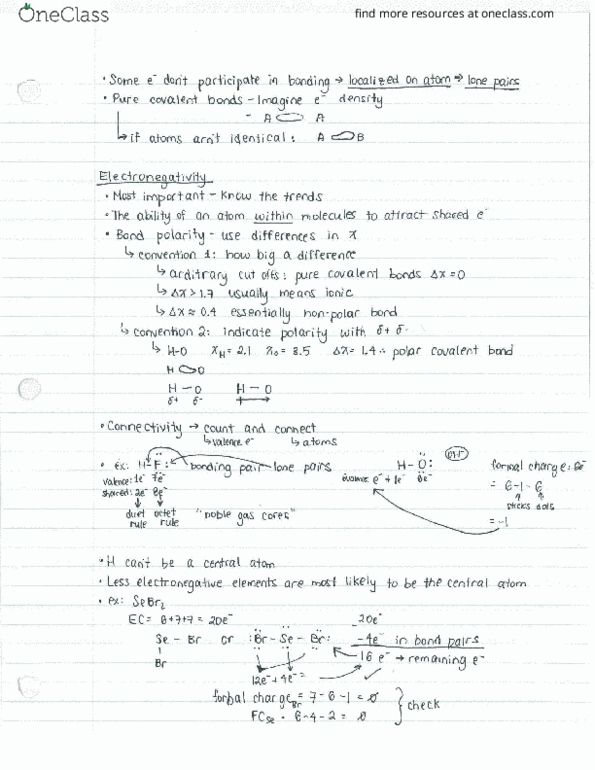 OneClass
find more resources at oneclass.com
• Some e⁻ don't participate in bonding → localized on atom → lone pairs
• Pure covalent bonds - Imagine e⁻ density
- A A
↳ if atoms arn't identical : A B
Electronegativity
• Most important - Know the trends
• The ability of an atom within molecules to attract shared e⁻
• Bond polarity - use differences in x
↳ convention 1: how big a difference
↳ arditrary cut offs : pure covalent bonds Δx = 0
↳ Δx > 1.7 usually means ionic
↳ Δx ≈ 0.4 essentially non-polar bond
↳ convention 2: indicate polarity with δ+ δ-
↳ H-O xH = 2.1 xO = 3.5 Δx = 1.4 ∴ polar covalent bond
H O
H - O H - O
δ+ δ-
• Connectivity → count and connect
↳ valence e⁻ ↳ atoms
• ex: H-F: bonding pair lone pairs H-O: OH⁻ formal charge:
valence: 1e⁻ 7e⁻ e⁻ + 1e⁻ 6e⁻ = 6-1-6
shared: 2e⁻ 8e⁻ sticks dots
duet octet "noble gas cores" = -1
rule rule
• H can't be a central atom
• Less electronegative elements are most likely to be the central atom
• ex: SeBr₂
EC = 6+7+7 = 20e⁻ 20e⁻
Se - Br or :Br - Se - Br: -4e⁻ in bond pairs
Br 16 e⁻ → remaining e⁻
12e⁻ + 4e⁻ =
formal charge Br = 7-6-1 = 0
FCSe = 6-4-2 = 0 } check